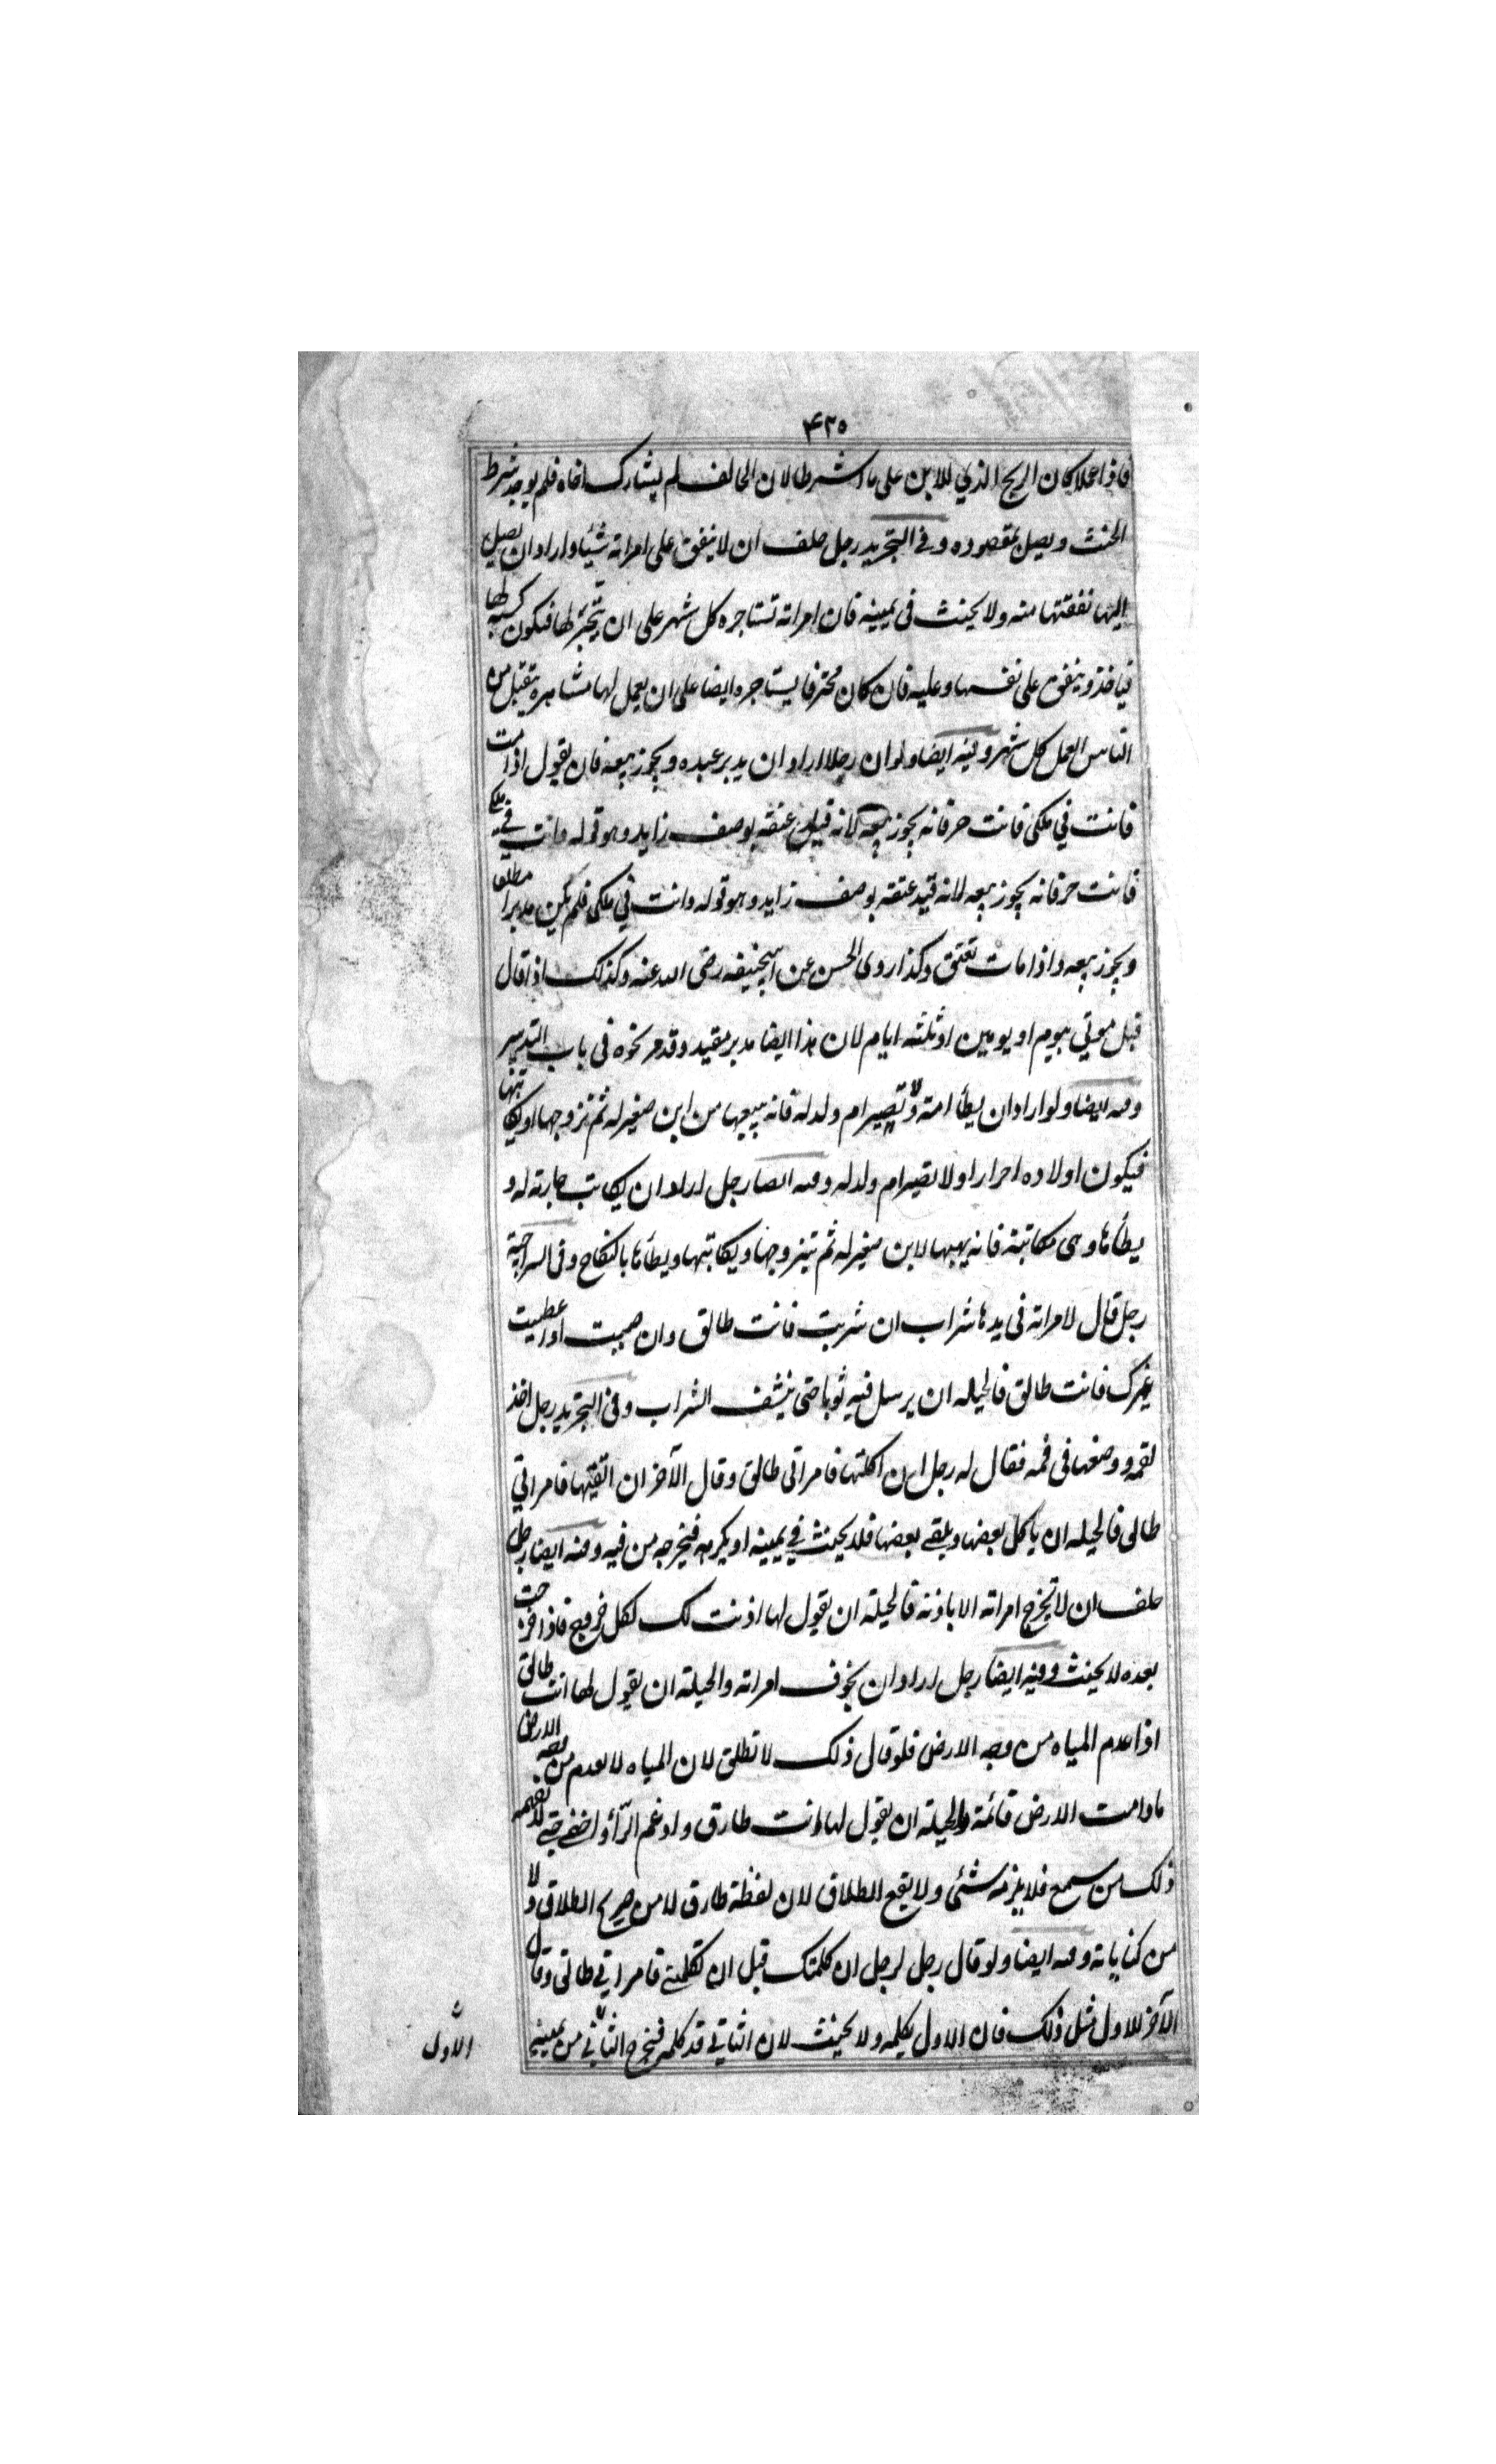 ۴۳۵
فاذا عملا كان الربح الذي للابن على ما اشترطا لان الحالف لم يشارك اخاه فلم يوجد شرط
الحنث ويصل بمقصوده وفى التجريد رجل حلف ان لا ينفق على امراته شيئا واراد ان يصل
اليها نفقتها منه ولا يحنث فى يمينه فان امراته تستاجره كل شهر على ان يتجر لها فيكون كسبه لها
فياخذ وينفق على نفسها وعليه فان كان محترفا يستاجره ايضا على ان يعمل لها مشاهرة يتقبل من
الناس العمل كل شهر وفيه ايضا ولو ان رجلا اراد ان يدبر عبده ويجوز بيعه فان يقول اذا مت
فانت في ملكى فانت حر فانه يجوز بيعه لانه قيد عتقه بوصف زايد وهو قوله وانت في ملكي
فانت حر فانه يجوز بيعه لانه قيد عتقه بوصف زايد وهو قوله وانت في ملكى فلم يكن مدبرا مطلقا
ويجوز بيعه واذا مات تعتق وكذا روى الحسن عن ابيحنيفه رضى الله عنه وكذلك اذا قال
قبل موتي بيوم او يومين او ثلثة ايام لان هذا ايضا مدبر مقيد وقد مر نحوه فى باب التدبير
وفيه ايضا ولو اراد ان يطأ امته ولا تصير ام ولد له فانه يبيعها من ابن صغير له ثم تزوجها او يكاتبها
فيكون اولاده احرارا ولا تصير ام ولد له وفيه ايضا رجل اراد ان يكاتب جاريته له و
يطأها وهى مكاتبة فانه يهبها لابن صغير له ثم يتزوجها ويكاتبها ويطأها بالنكاح وفى السراجية
رجل قال لامراته فى يدها شراب ان شربت فانت طالق وان صببت او اعطيت
غيرك فانت طالق فالحيله ان يرسل فيه ثوبا حتى ينشف الشراب وفى التجريد رجل اخذ
لقمه ووضعها فى فمه فقال له رجل ان اكلتها فامراتى طالق وقال الآخر ان القيتها فامراتي
طالق فالحيله ان ياكل بعضها ويلقے بعضها فلا يحنث في يمينه او يكره فيخرجه من فيه وفيه ايضا رجل
حلف ان لا تخرج امراته الا باذنه فالحيلة ان يقول لها اذنت لك لكل خروج فاذا خرجت
بعده لا يحنث وفيه ايضا رجل اراد ان يخوف امراته والحيلة ان يقول لها انت طالق
اذا عدم المياه من وجه الارض فلو قال ذلك لا تطلق لان المياه لا تعدم من وجه الارض
مادامت الارض قائمة والحيلة ان يقول لها انت طارق وادغم الرّا واخفے حتے لا تفهمه
ذلك من سمع فلا يلزمه شئى ولا يقع الطلاق لان لفظة طارق لا من صريح الطلاق ولا
من كناياته وفيه ايضا ولو قال رجل لرجل ان كلمتك قبل ان تكلمنے فامراتي طالق وقال
الآخر للاول مثل ذلك فان الاول يكلمه ولا يحنث لان الثاني قد كلمه فيخرج الثاني من يمينه
الاول